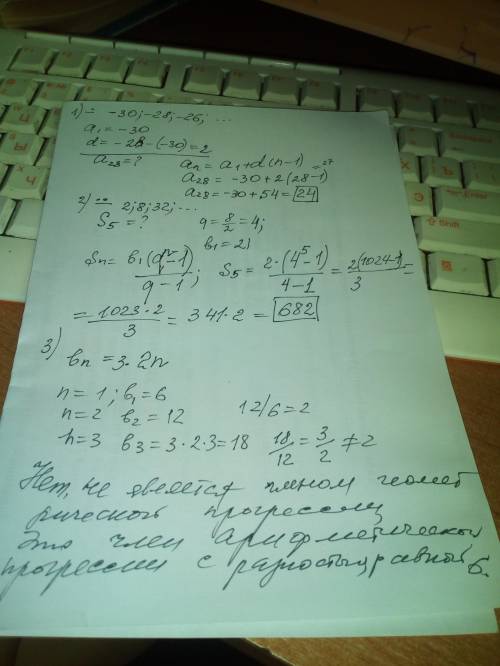 1) ÷ -30; -28; -26; ...
a₁ = -30
d = -28 - (-30) = 2
a₂₈ = ?
aₙ = a₁ + d(n-1)
a₂₈ = -30 + 2(28-1) = 27
a₂₈ = -30 + 54 = 24
2) ∺ 2; 8; 32; ...
S₅ = ? q = 8/2 = 4;
b₁ = 2)
Sₙ = b₁(qⁿ-1)/(q-1); S₅ = 2·(4⁵-1)/(4-1) = 2(1024-1)/3 =
= 1023·2/3 = 341·2 = 682
3)
bₙ = 3·2n
n = 1; b₁ = 6
n = 2 b₂ = 12 12/6 = 2
n = 3 b₃ = 3·2·3 = 18 18/12 = 3/2 ≠ 2
Нет, не является членом геомет
рической прогрессии
Это член арифметической
прогрессии с разностью равной 6.